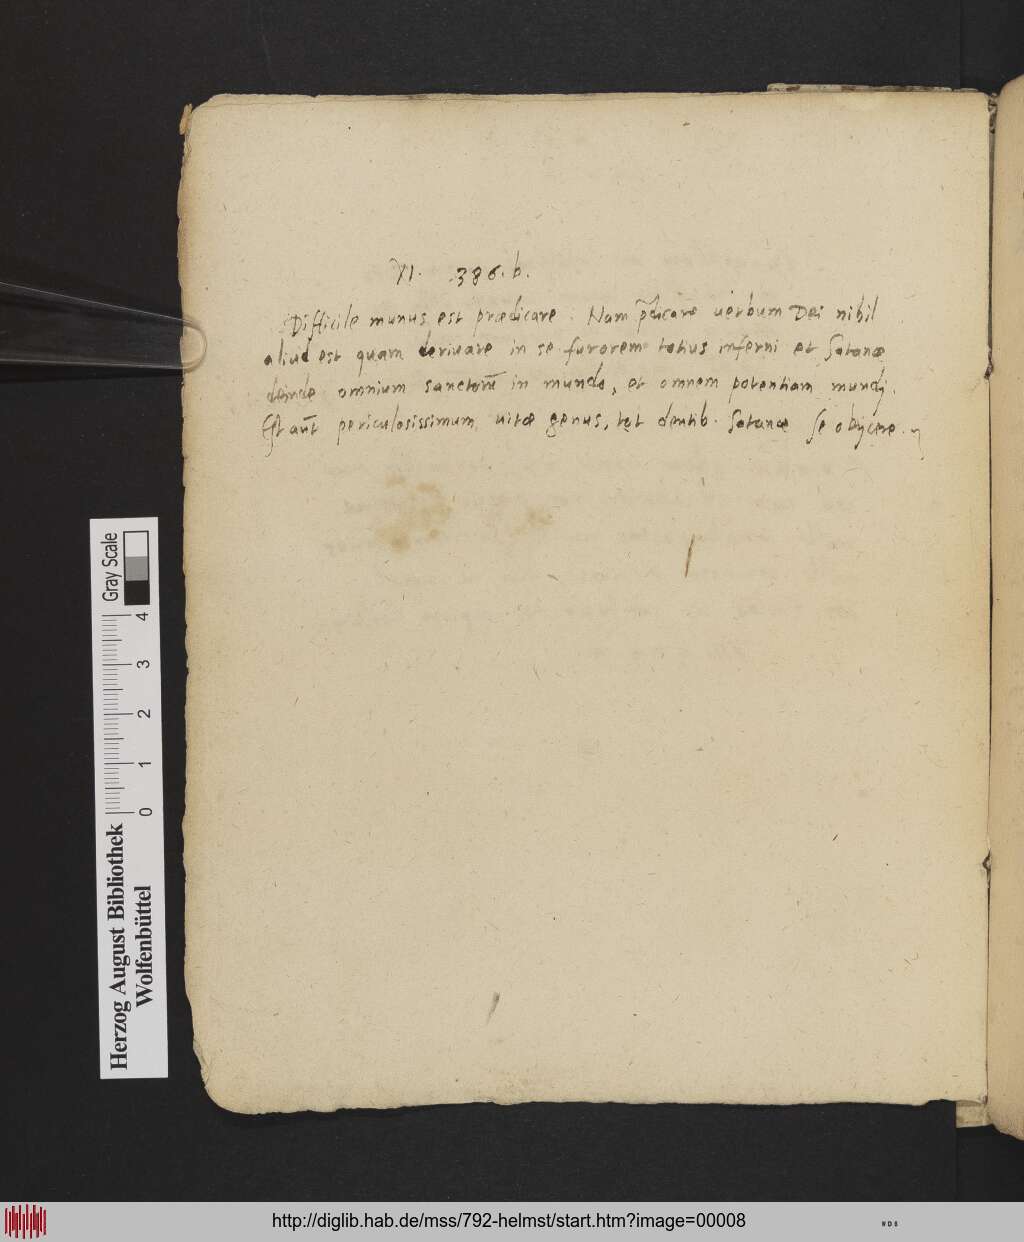 XI. 386. b.
Difficile munus est prædicare: Nam p̄dicare uerbum Dei nihil
aliud est quam deriuare in se furorem totius inferni et Satanæ
deinde omnium sanctorū in mundo, et omnem potentiam mundi.
Est aūt periculosissimum uitæ genus, tot dentib. Satanæ se obijcere.
Gray Scale
0 1 2 3 4
Herzog August Bibliothek
Wolfenbüttel
http://diglib.hab.de/mss/792-helmst/start.htm?image=00008